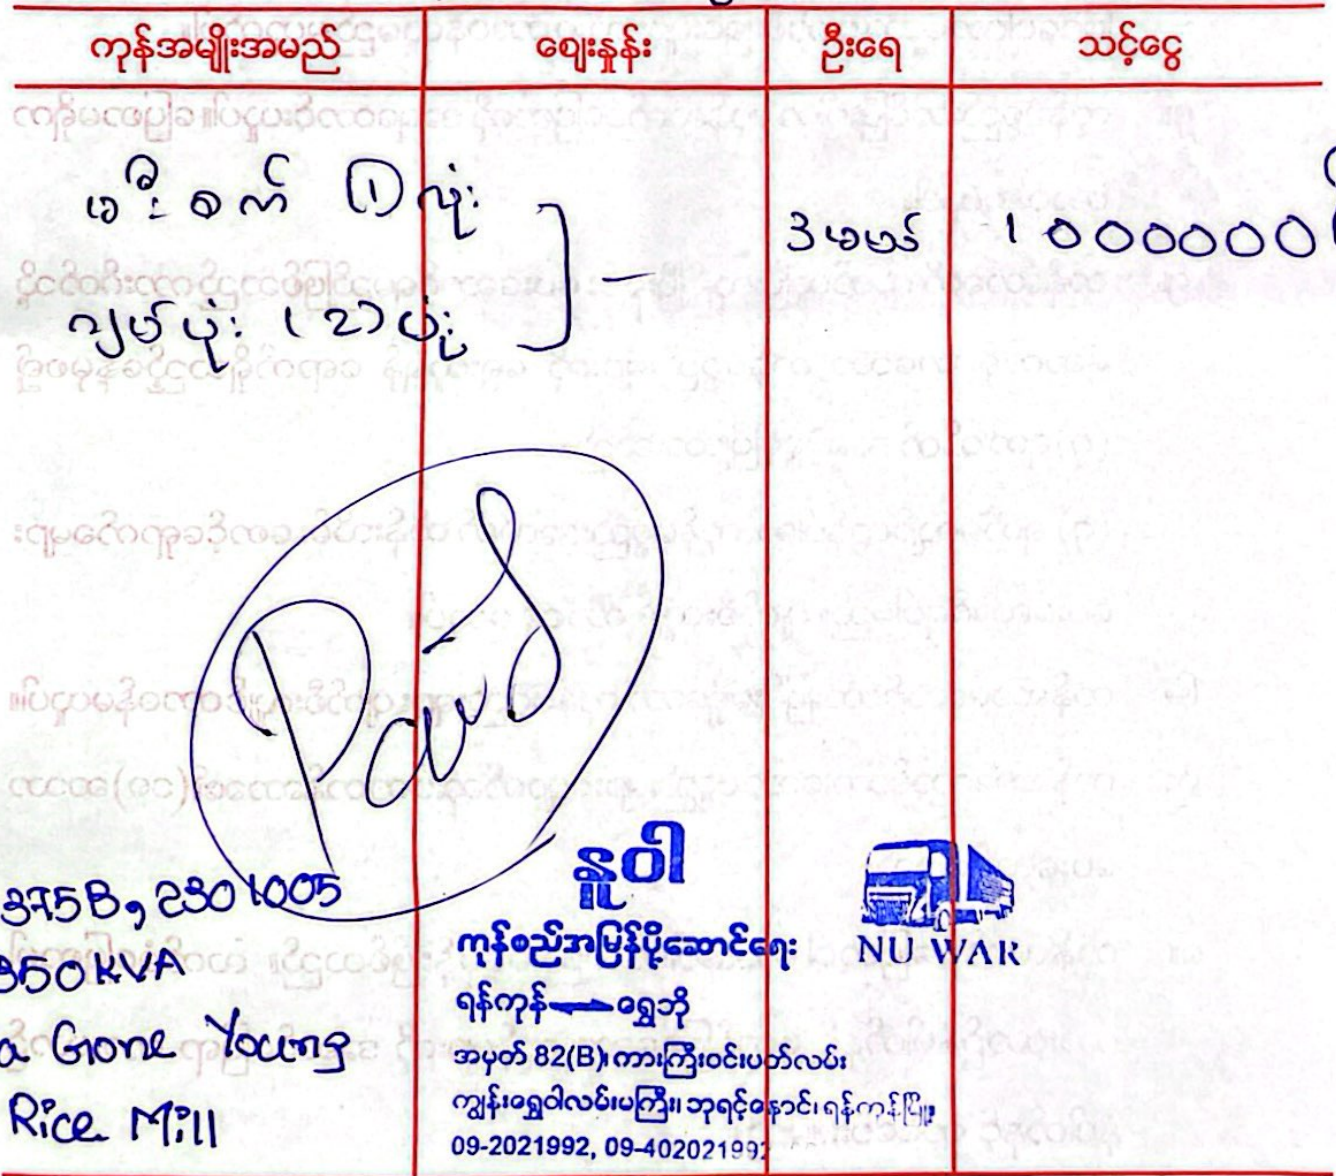 ကုန်အမျိုးအမည် ဈေးနှုန်း ဦးရေ သင့်ငွေ
မီးစက် (၁) လုံး
ဂျပ်ပုံး (2) ပုံး
၃ 1000000
Paid
375B, 2301005
350KVA
a Gone Young
Rice Mill
နူဝါ
ကုန်စည်အမြန်ပို့ဆောင်ရေး
NU WAR
ရန်ကုန် ရွှေဘို
အမှတ် 82(B)၊ ကားကြီးဝင်းပတ်လမ်း
ကျွန်းရွှေဝါလမ်းမကြီး၊ ဘုရင့်နောင်၊ ရန်ကုန်မြို့။
09-2021992, 09-402021992